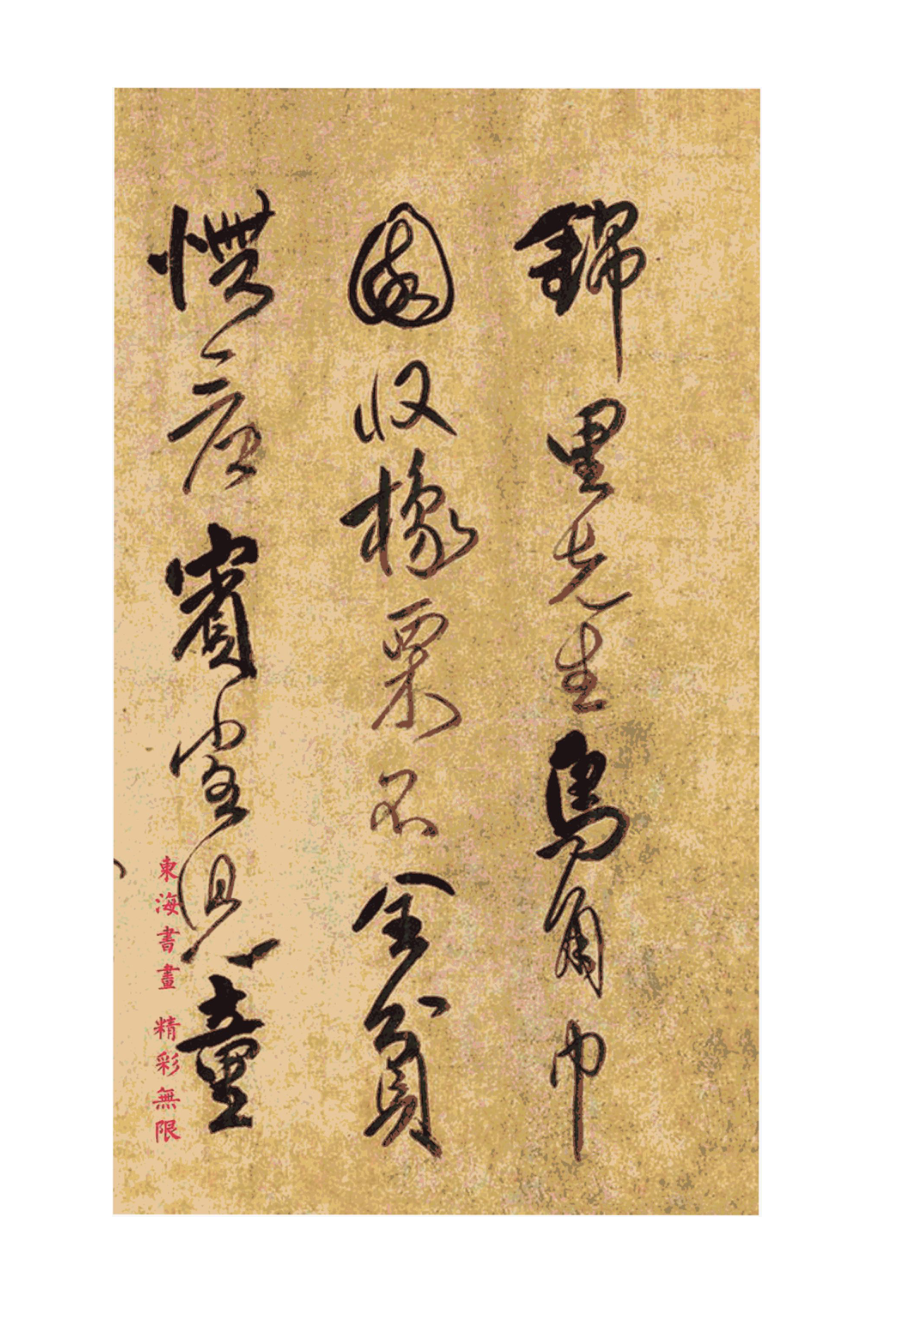 錦里先生烏角巾
園收橡栗不全貧
慣看賓客兒童
東海書畫 精彩無限